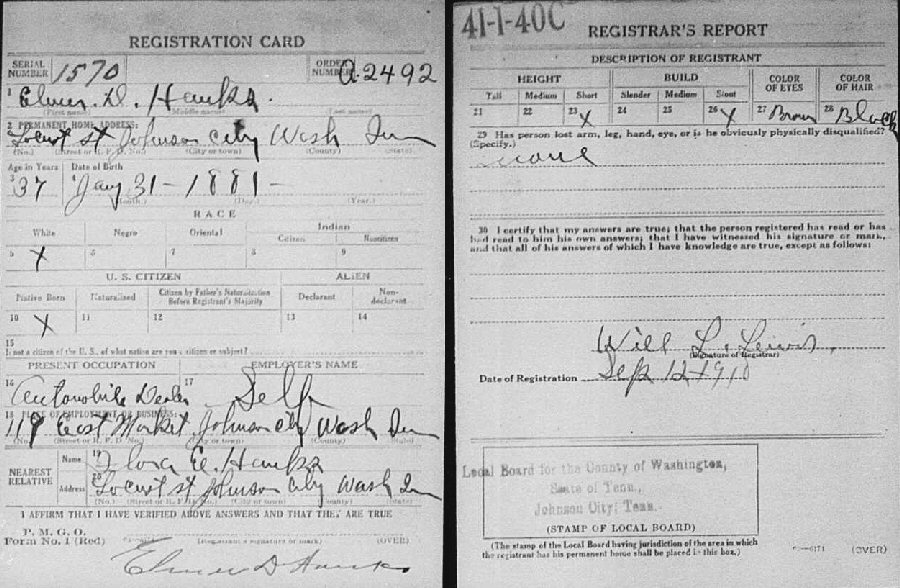 REGISTRATION CARD
SERIAL NUMBER 1570 ORDER NUMBER A2492
1 Elmer D. Hawks.
(First name) (Middle name) (Last name)
2 PERMANENT HOME ADDRESS:
Locust st Johnson City Wash Tenn
(No.) (Street or R. F. D. No.) (City or town) (County) (State)
Age in Years Date of Birth
3 37 4 Jany 31 - 1881 -
(Month.) (Day.) (Year.)
RACE
White Negro Oriental Indian
Citizen Noncitizen
5 X 6 7 8 9
U. S. CITIZEN ALIEN
Native Born Naturalized Citizen by Father's Naturalization Before Registrant's Majority Declarant Non-declarant
10 X 11 12 13 14
15
If not a citizen of the U. S., of what nation are you a citizen or subject?
PRESENT OCCUPATION EMPLOYER'S NAME
16 Automobile Dealer 17 Self
18 PLACE OF EMPLOYMENT OR BUSINESS:
119 East Market Johnson City Wash Tenn
(No.) (Street or R. F. D. No.) (City or town) (County) (State)
NEAREST RELATIVE
Name 19 Flora E. Hawks
Address 20 Locust st Johnson City Wash Tenn
(No.) (Street or R. F. D. No.) (City or town) (County) (State)
I AFFIRM THAT I HAVE VERIFIED ABOVE ANSWERS AND THAT THEY ARE TRUE
P. M. G. O.
Form No. 1 (Red) (Registrant's signature or mark) (OVER)
Elmer D Hawks
41-1-40C
REGISTRAR'S REPORT
DESCRIPTION OF REGISTRANT
HEIGHT BUILD COLOR OF EYES COLOR OF HAIR
Tall Medium Short Slender Medium Stout
21 22 23 X 24 25 26 X 27 Brown 28 Black
29 Has person lost arm, leg, hand, eye, or is he obviously physically disqualified?
(Specify.)
none
30 I certify that my answers are true; that the person registered has read or has
had read to him his own answers; that I have witnessed his signature or mark,
and that all of his answers of which I have knowledge are true, except as follows:
Will L. Lewis,
(Signature of Registrar)
Date of Registration Sep 12-1918
Local Board for the County of Washington,
State of Tenn.,
Johnson City, Tenn.
(STAMP OF LOCAL BOARD)
(The stamp of the Local Board having jurisdiction of the area in which
the registrant has his permanent home shall be placed in this box.)
(OVER)